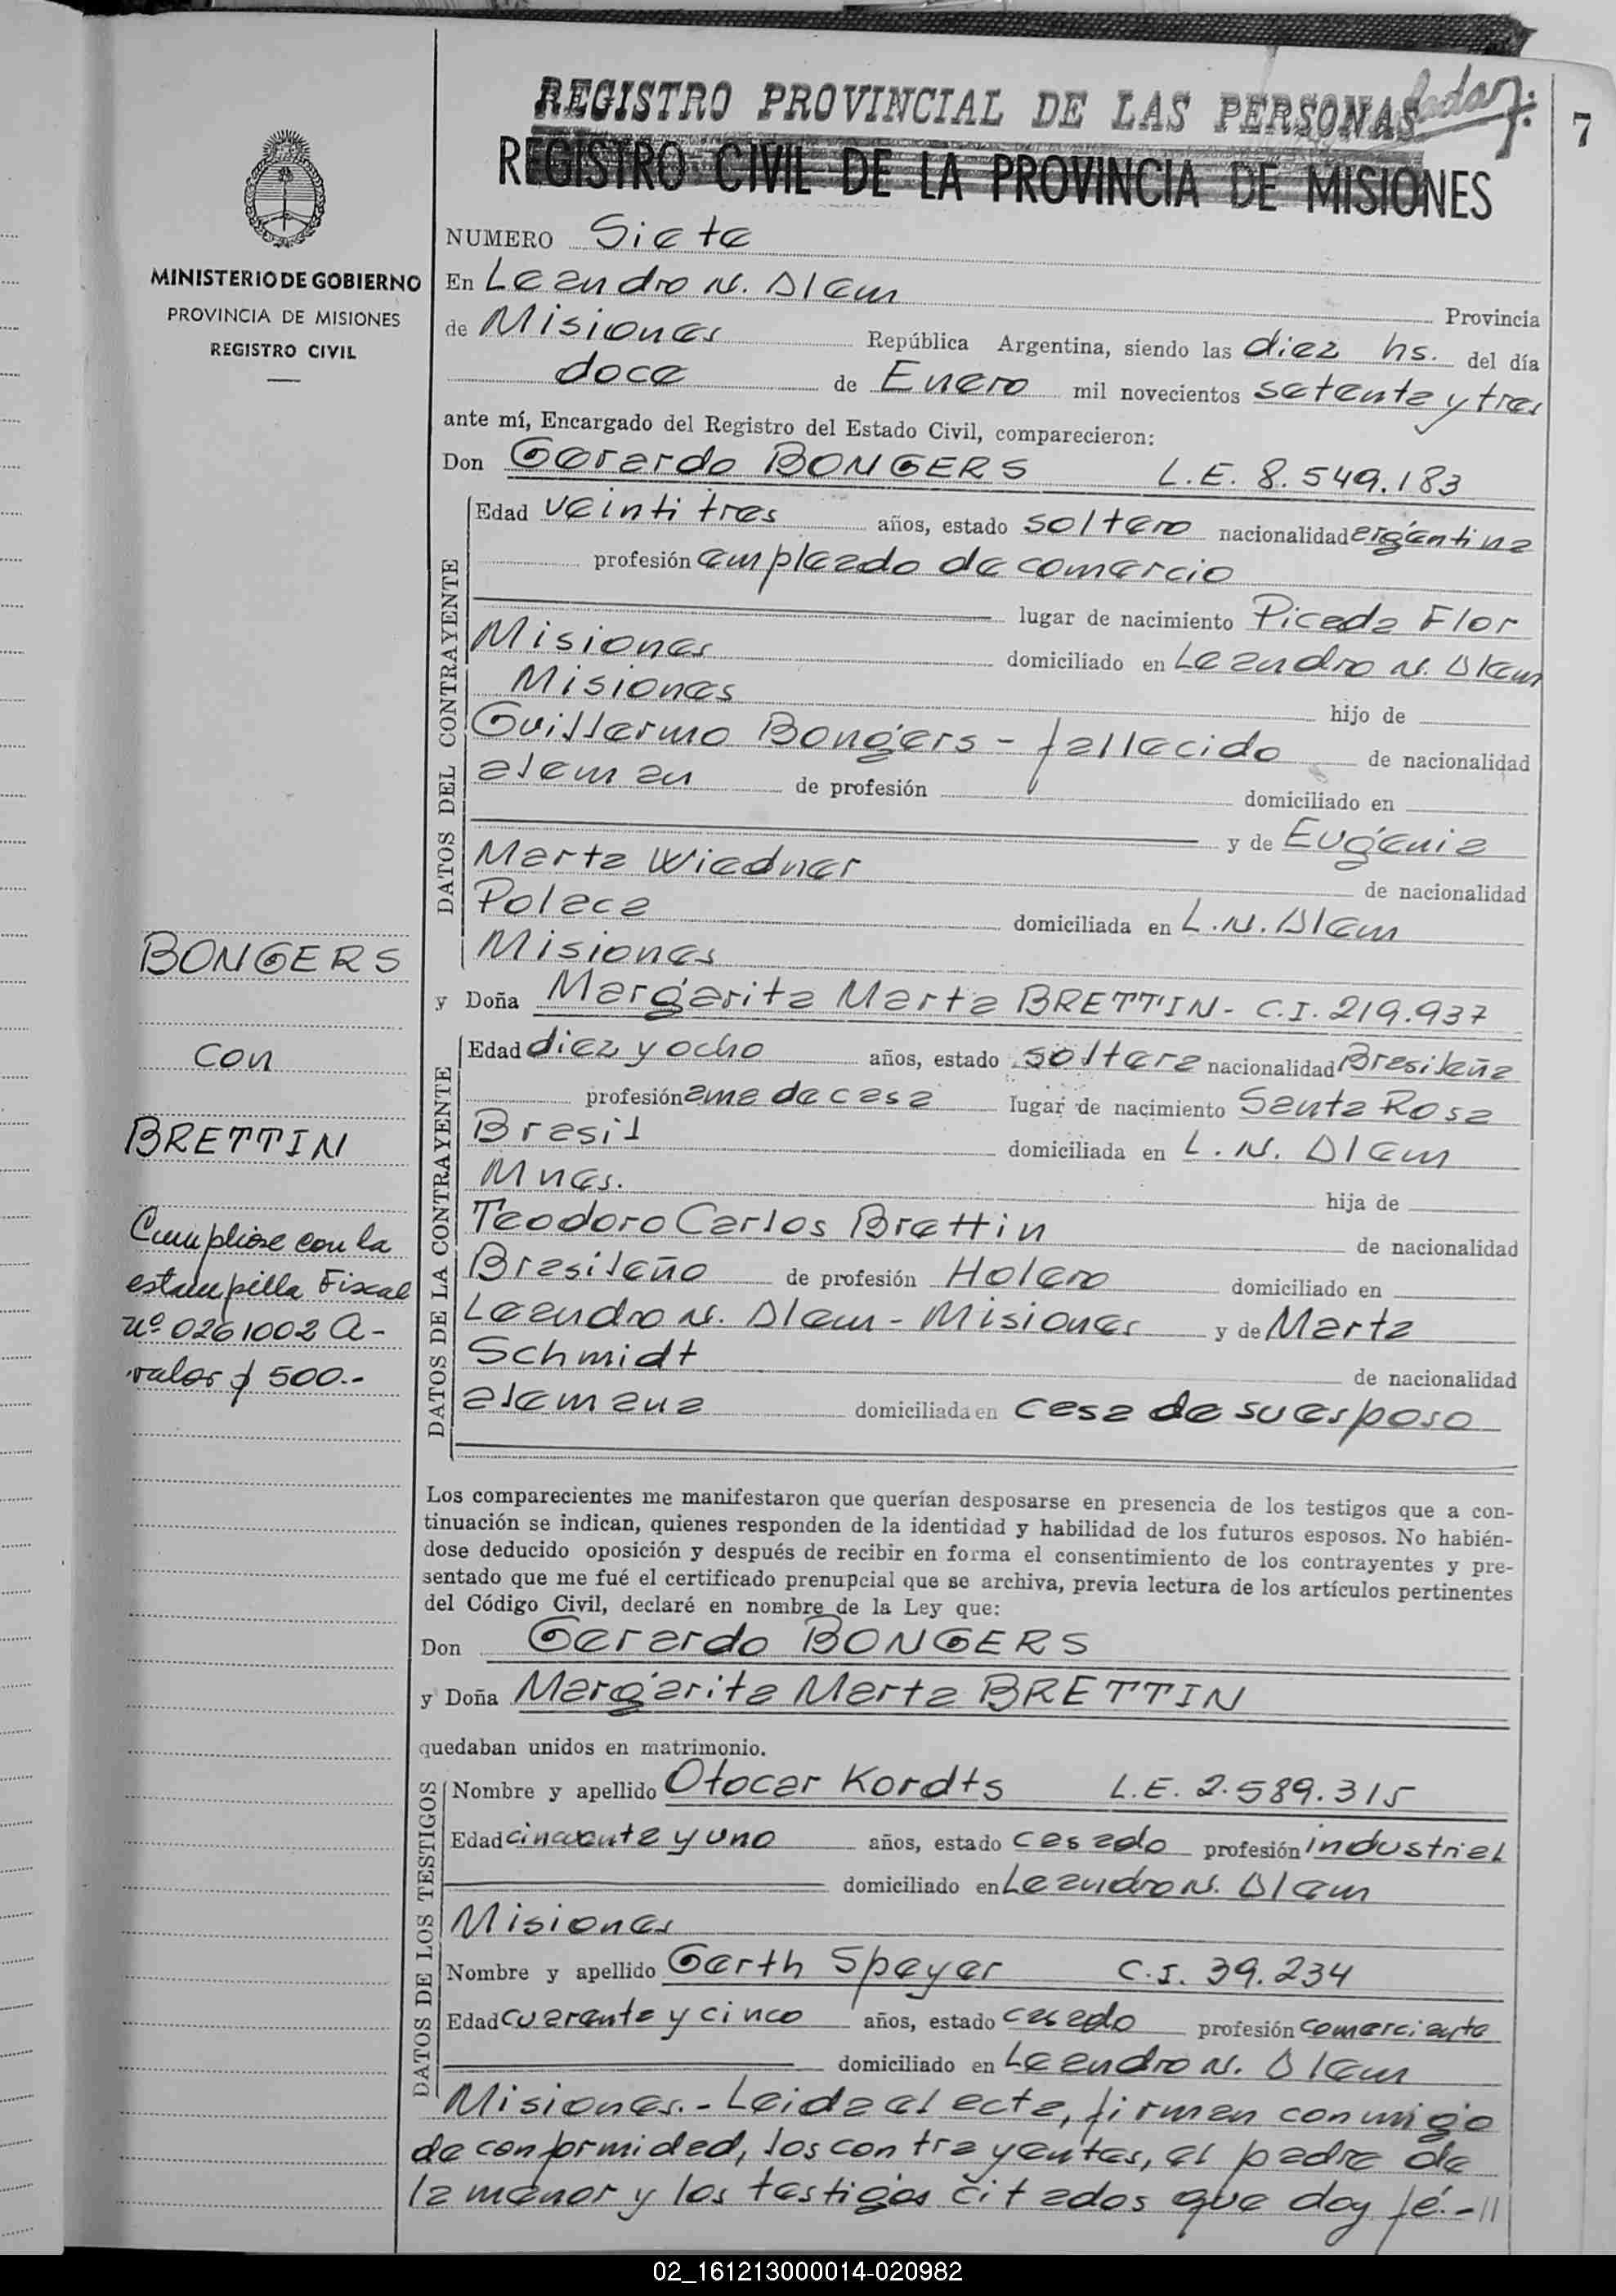 REGISTRO PROVINCIAL DE LAS PERSONAS
7
REGISTRO CIVIL DE LA PROVINCIA DE MISIONES
MINISTERIO DE GOBIERNO
PROVINCIA DE MISIONES
REGISTRO CIVIL
NUMERO Siete
En Leandro N. Alem Provincia
de Misiones República Argentina, siendo las diez hs. del día
doce de Enero mil novecientos setenta y tres
ante mí, Encargado del Registro del Estado Civil, comparecieron:
Don Gerardo BONGERS L.E. 8.549.183
DATOS DEL CONTRAYENTE
Edad veinti tres años, estado soltero nacionalidad argentina
profesión empleado de comercio
lugar de nacimiento Picada Flor
Misiones domiciliado en Leandro N. Alem
Misiones hijo de
Guillermo Bongers - fallecido de nacionalidad
aleman de profesión domiciliado en
y de Eugenia
Marta Wiedner de nacionalidad
Polaca domiciliada en L.N. Alem
Misiones
y Doña Margarita Marta BRETTIN - C.I. 219.937
DATOS DE LA CONTRAYENTE
Edad diez y ocho años, estado soltera nacionalidad Brasileña
profesión ama de casa lugar de nacimiento Santa Rosa
Brasil domiciliada en L. N. Alem
Mnes. hija de
Teodoro Carlos Brettin de nacionalidad
Brasileño de profesión Holero domiciliado en
Leandro N. Alem - Misiones y de Marta
Schmidt de nacionalidad
alemana domiciliada en casa de su esposo
BONGERS
con
BRETTIN
Cumpliose con la
estampilla Fiscal
nº 0261002 A -
valor $ 500.-
Los comparecientes me manifestaron que querían desposarse en presencia de los testigos que a con-
tinuación se indican, quienes responden de la identidad y habilidad de los futuros esposos. No habién-
dose deducido oposición y después de recibir en forma el consentimiento de los contrayentes y pre-
sentado que me fué el certificado prenupcial que se archiva, previa lectura de los artículos pertinentes
del Código Civil, declaré en nombre de la Ley que:
Don Gerardo BONGERS
y Doña Margarita Marta BRETTIN
quedaban unidos en matrimonio.
DATOS DE LOS TESTIGOS
Nombre y apellido Otocar Kordts L.E. 2.589.315
Edad cincuenta y uno años, estado casado profesión industrial
domiciliado en Leandro N. Alem
Misiones
Nombre y apellido Gerth Speyer C.I. 39.234
Edad cuarenta y cinco años, estado casado profesión comerciante
domiciliado en Leandro N. Alem
Misiones.- Leida el acta, firman conmigo
de conformidad, los contrayentes, el padre de
la menor y los testigos citados que doy fé.-//
02_161213000014-020982